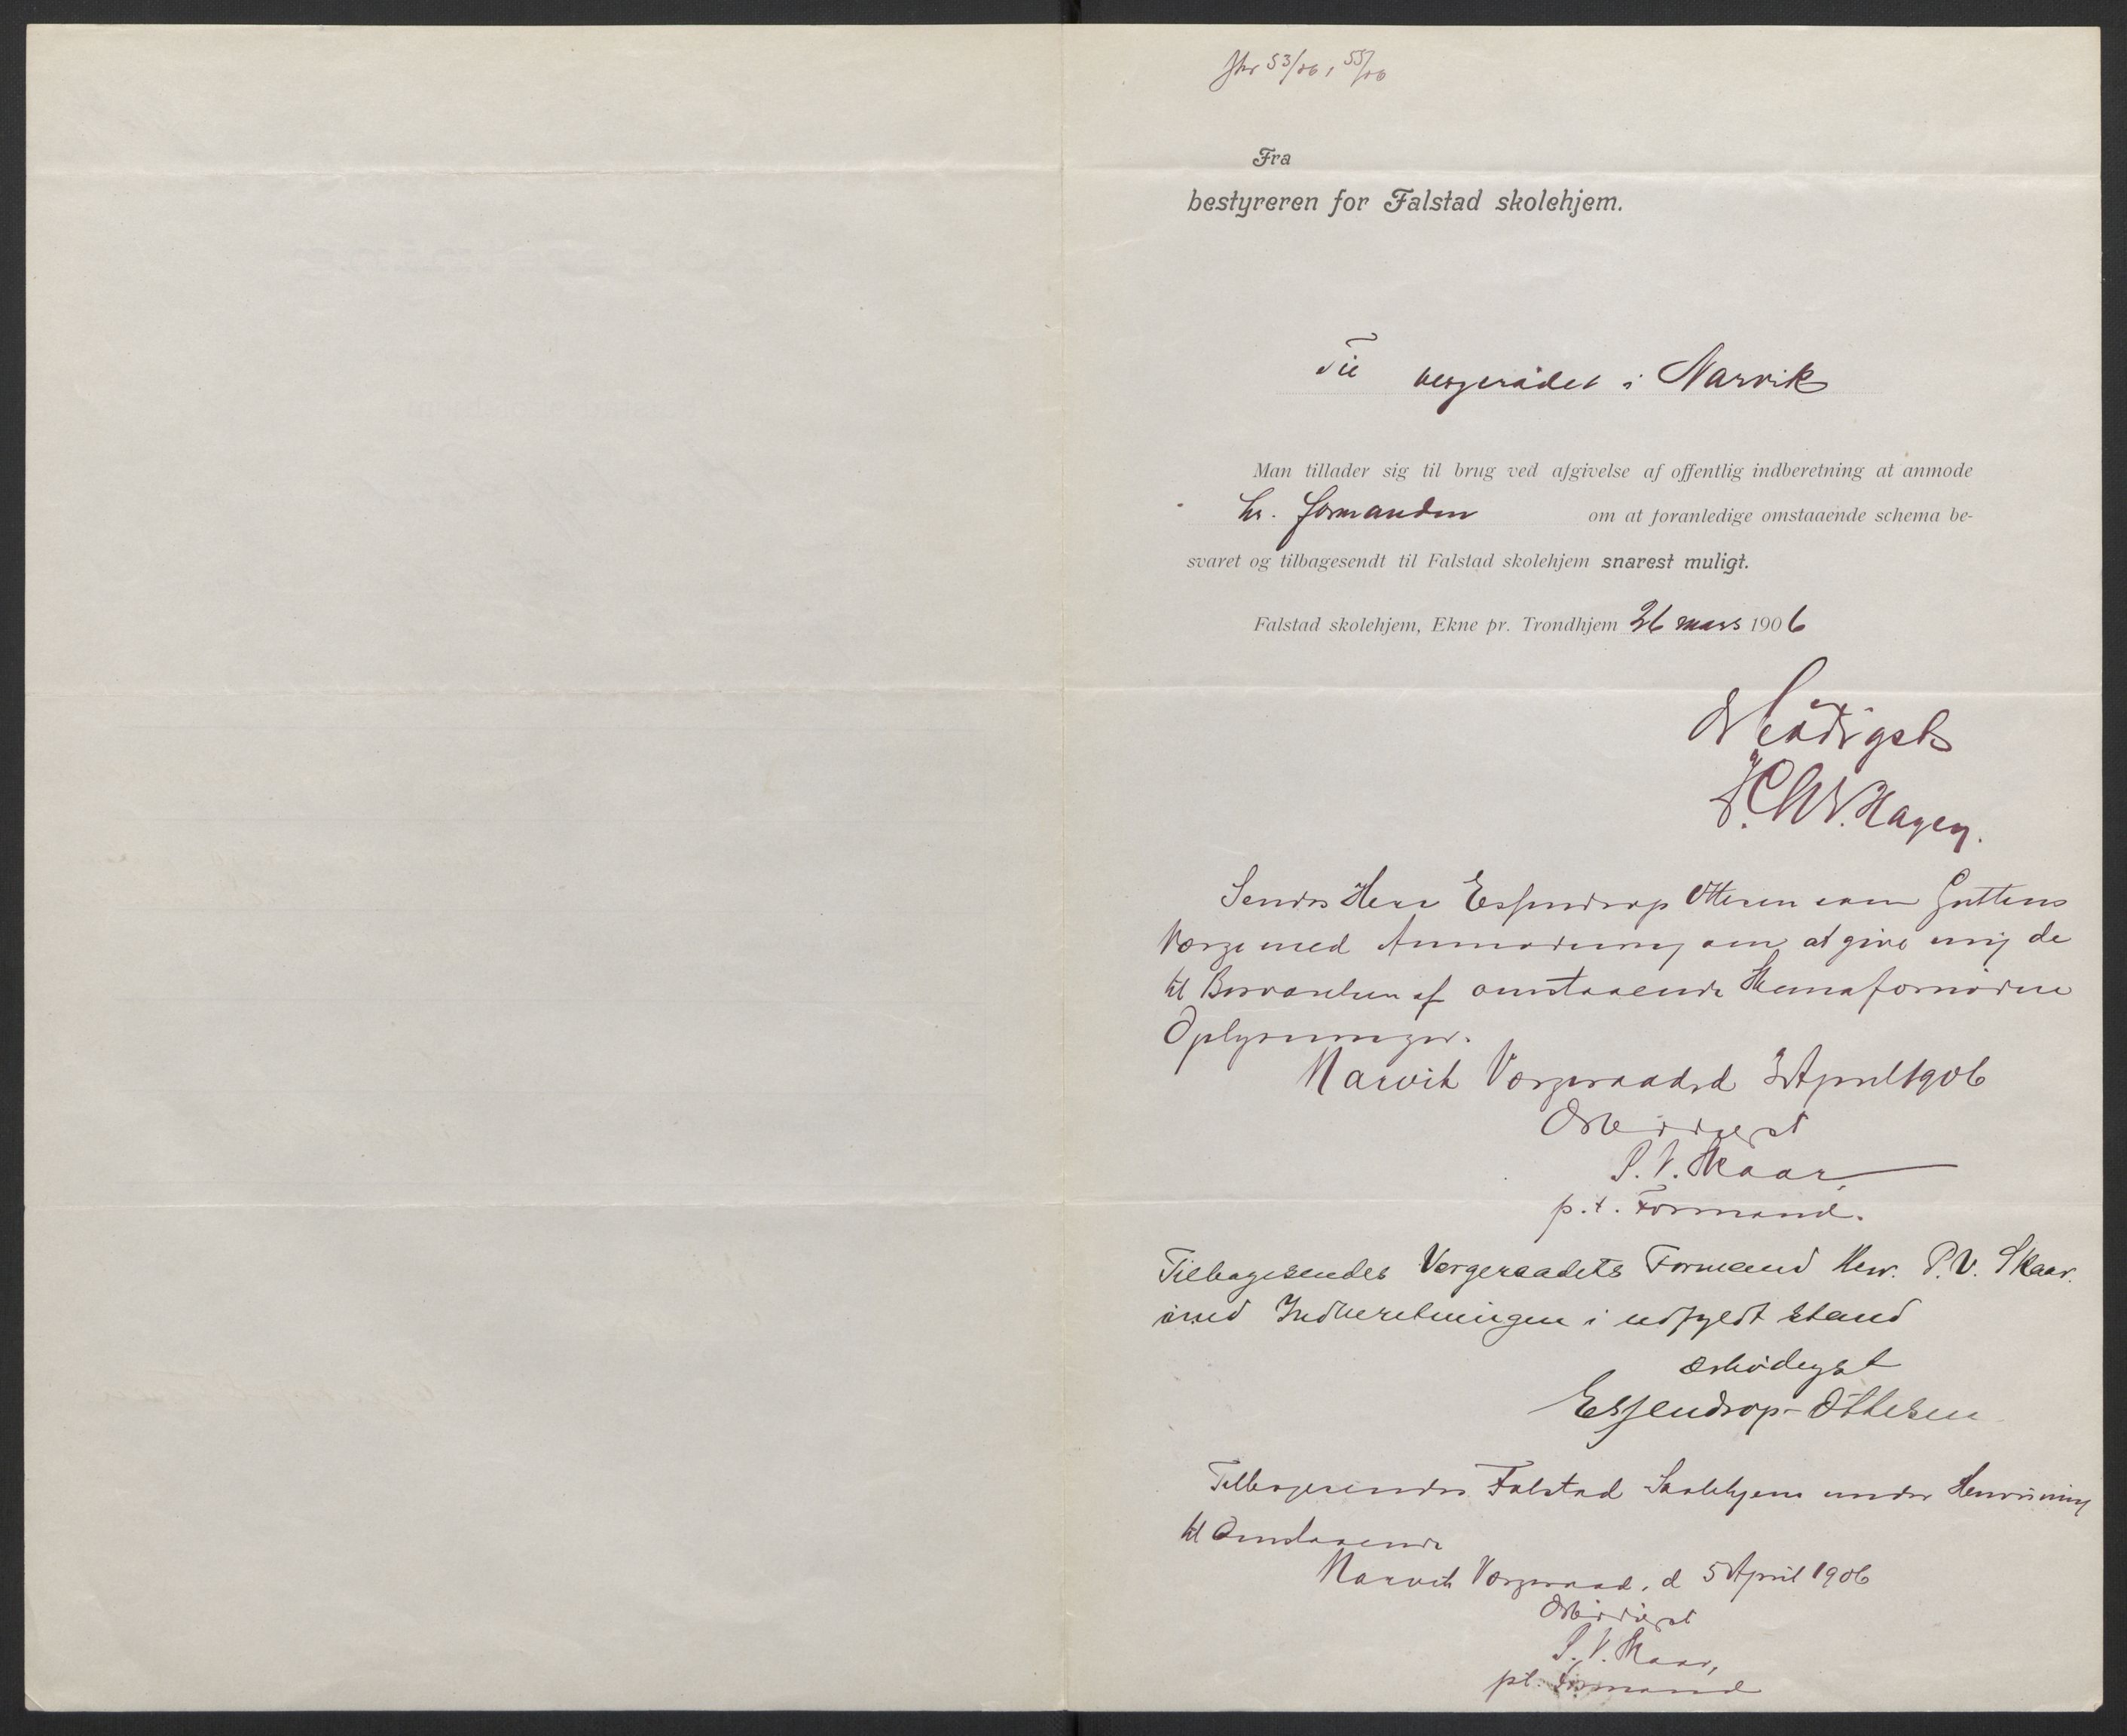 Jnr 53/06, 55/06
Fra
bestyreren for Falstad skolehjem.
Til vergerådet i Narvik
Man tillader sig til brug ved afgivelse af offentlig indberetning at anmode
hr. formanden om at foranledige omstaaende schema be-
svaret og tilbagesendt til Falstad skolehjem snarest muligt.
Falstad skolehjem, Ekne pr. Trondhjem 26 mars 1906
Ærbødigst
Hagen.
Sendes Herr Essendrop Ottesen som Guttens
Værge med Anmodning om at give mig de
til Besvarelsen af omstaaende Skema fornødne
Oplysninger.
Narvik Værgeraad d 3 April 1906
Ærbødigst
P. V. Skaar
p.t. Formand.
Tilbagesendes Vergeraadets Formand Herr. P. V. Skaar.
med Indberetningen i udfyldt stand
ærbødigst
Essendrop-Ottesen
Tilbagesendes Falstad Skolehjem under Henvisning
til Omstaaende
Narvik Værgeraad, d 5 April 1906
Ærbødigst
P. V. Skaar,
pt. Formand